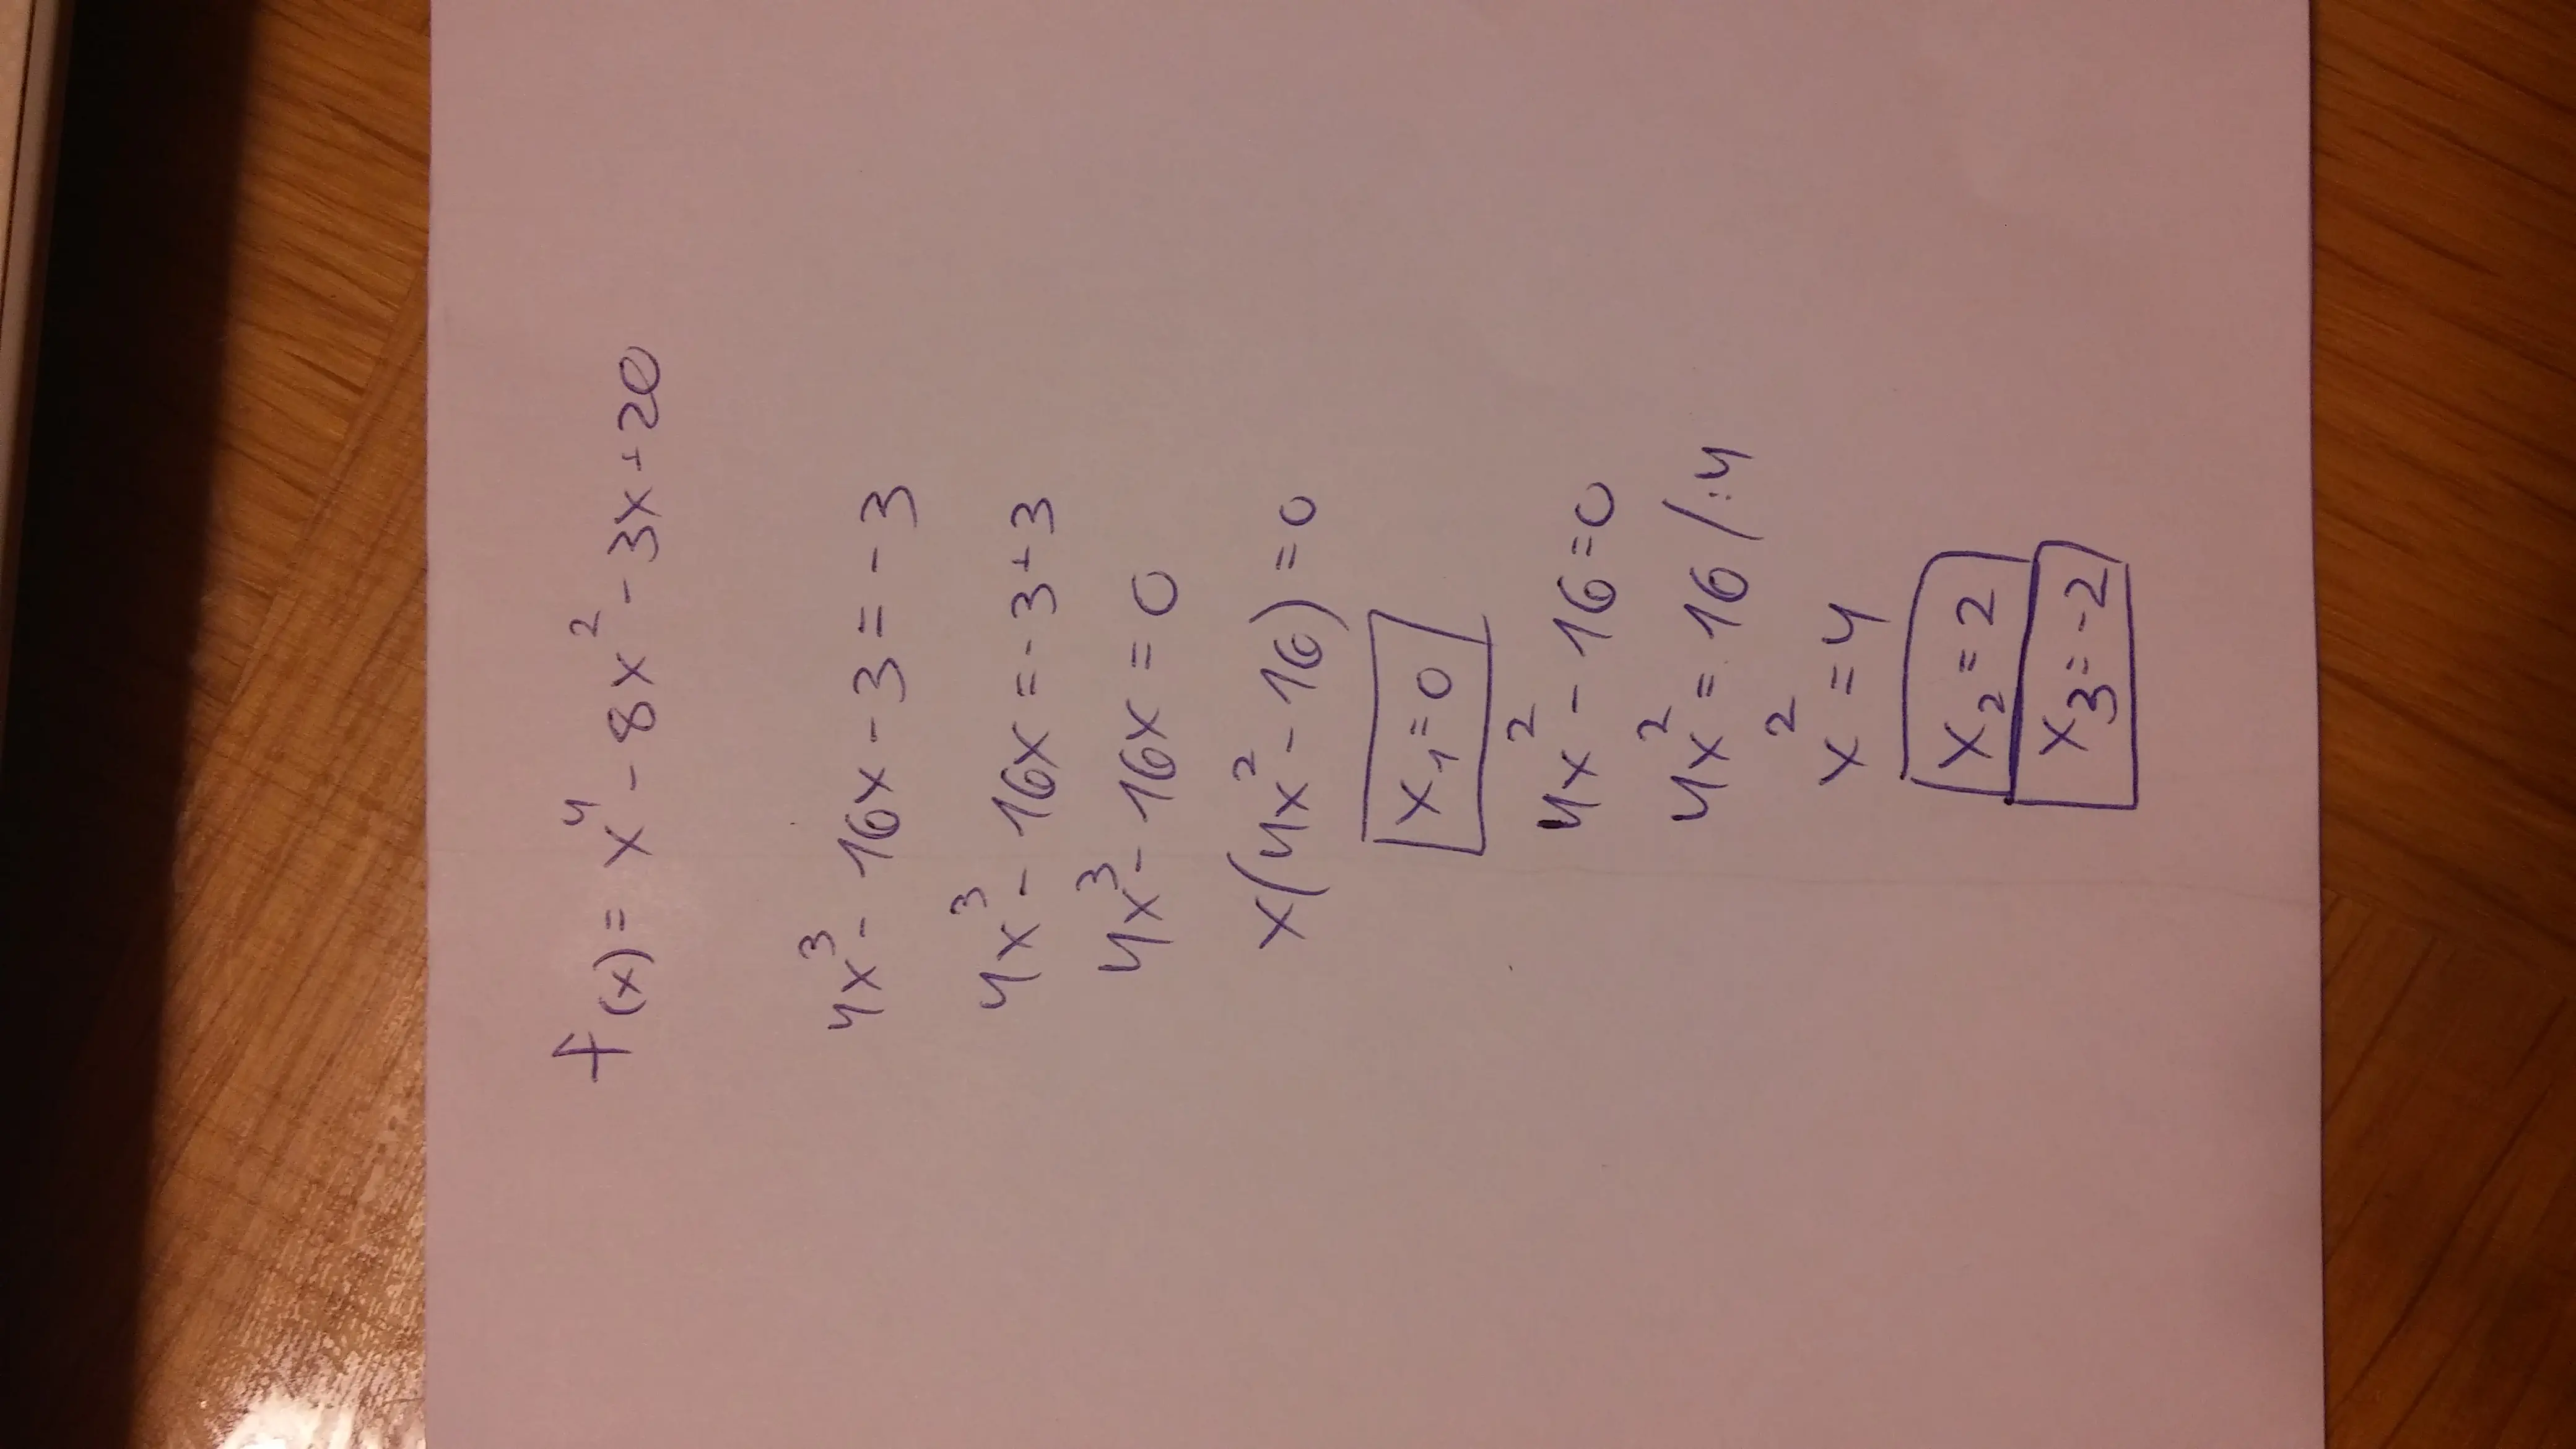 f(x) = x⁴ - 8x² - 3x + 20
4x³ - 16x - 3 = -3
4x³ - 16x = -3 + 3
4x³ - 16x = 0
x(4x² - 16) = 0
x₁ = 0
4x² - 16 = 0
4x² = 16 / :4
x² = 4
x₂ = 2
x₃ = -2